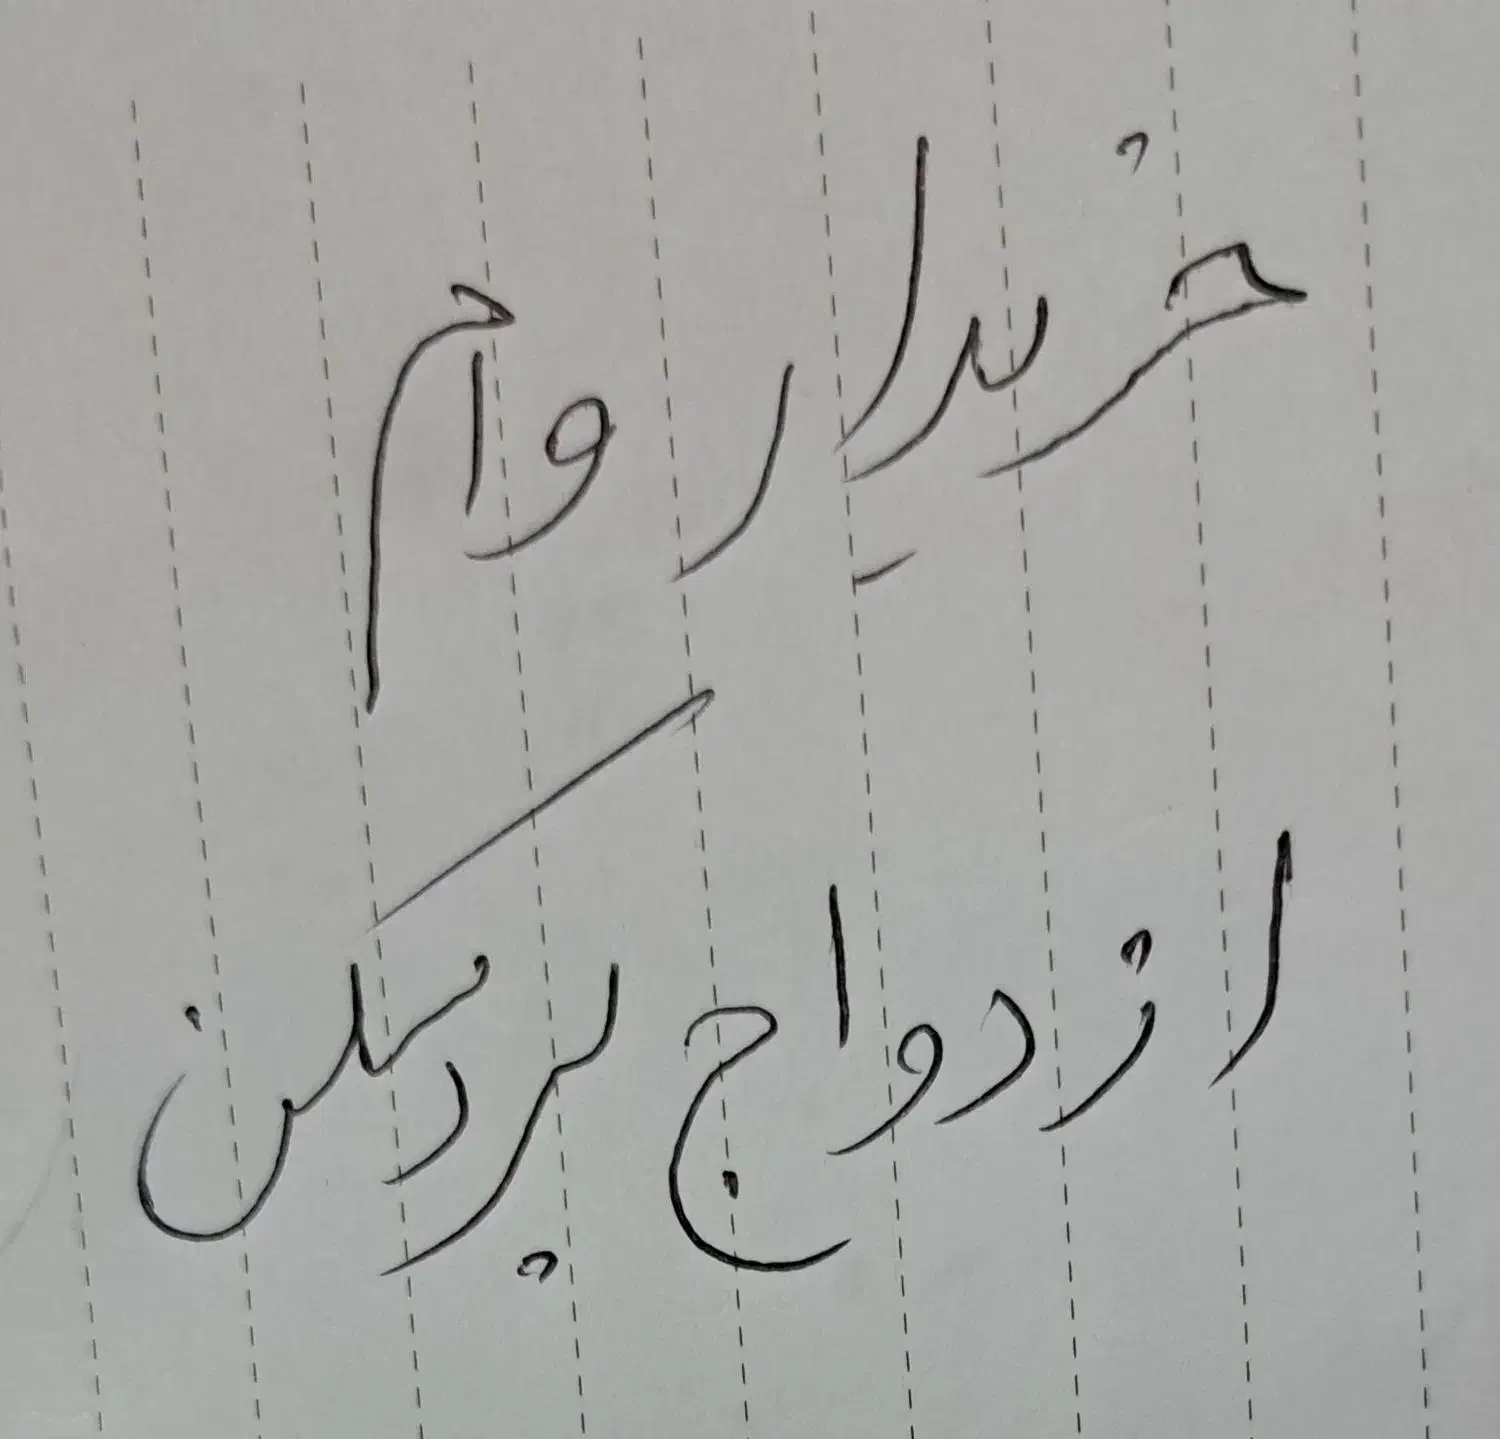 خریدار وام
ازدواج پردمکن